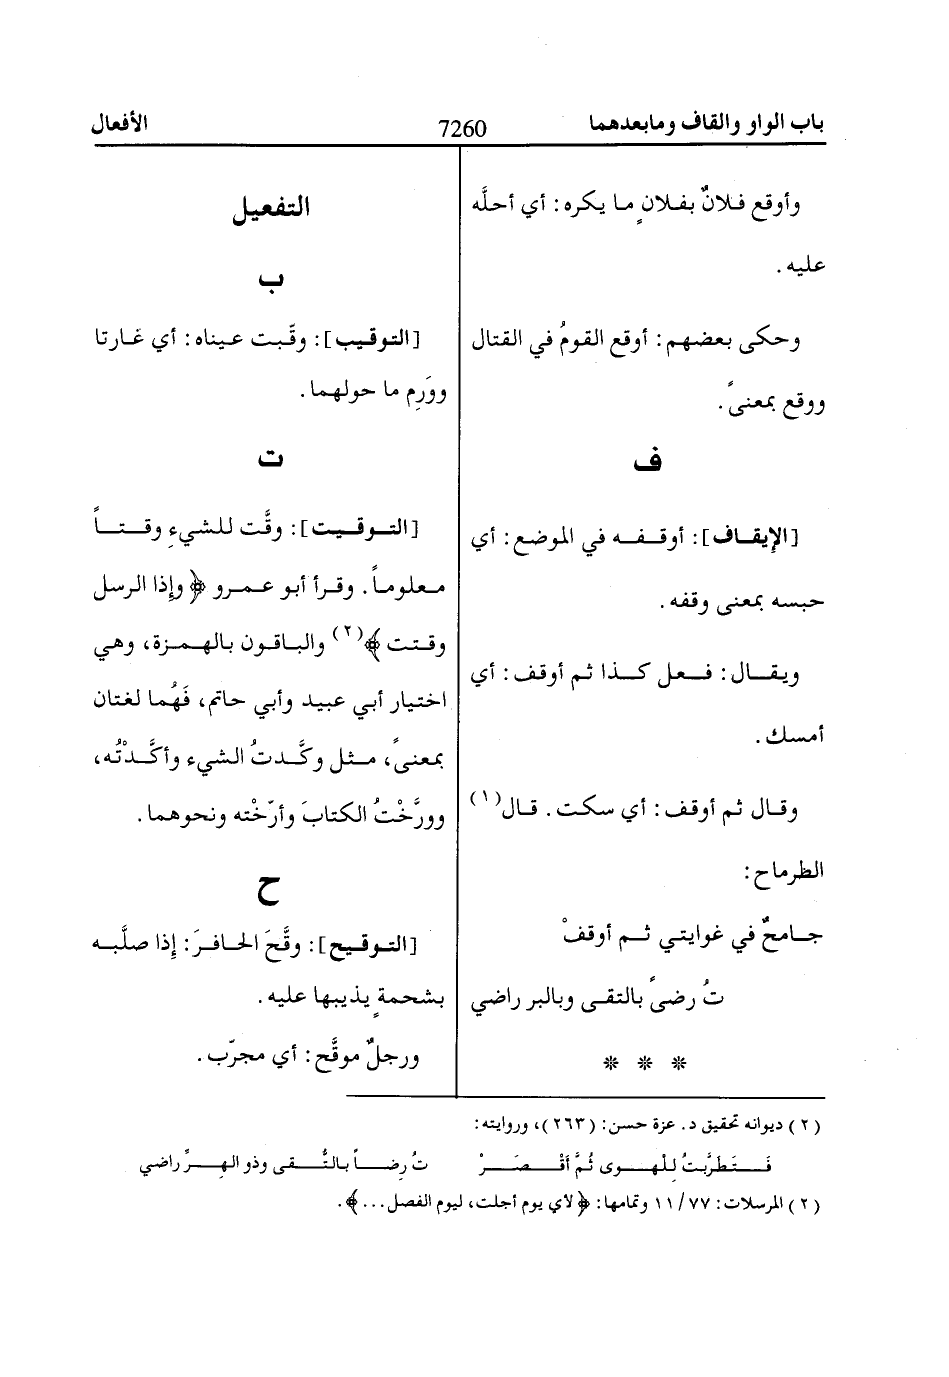 باب الواو والقاف ومابعدهما
7260
الأفعال
وأوقع فلانٌ بفلانٍ ما يكره: أي أحلَّه
عليه.
وحكى بعضهم: أوقع القومُ في القتال
ووقع بمعنىً.
ف
[الإيقاف]: أوقفه في الموضع: أي
حبسه بمعنى وقفه.
ويقال: فعل كذا ثم أوقف: أي
أمسك.
وقال ثم أوقف: أي سكت. قال(١)
الطرماح:
جامحٌ في غوايتي ثم أوقفْ
تُ رضىً بالتقى وبالبر راضي
* * *
التفعيل
ب
[التوقيب]: وقَّبت عيناه: أي غارتا
ووَرِم ما حولهما.
ت
[التوقيت]: وقَّت للشيءِ وقتاً
معلوماً. وقرأ أبو عمرو ﴿وإذا الرسل
وقتت﴾(٢) والباقون بالهمزة، وهي
اختيار أبي عبيد وأبي حاتم، فَهُما لغتان
بمعنىً، مثل وكَّدتُ الشيء وأكَّدْتُه،
وورَّخْتُ الكتابَ وأرّخْته ونحوهما.
ح
[التوقيح]: وقَّحَ الحافرَ: إذا صلَّبه
بشحمةٍ يذيبها عليه.
ورجلٌ موقَّح: أي مجرّب.
(٢) ديوانه تحقيق د. عزة حسن: (٢٦٣)، وروايته:
فَتَطَرَّبتُ لِلْهوى ثُمَّ أقْصَرْ تُ رِضاً بالتُّقى وذو الهِرِّ راضي
(٢) المرسلات: ٧٧/ ١١ وتمامها: ﴿لأي يوم أجلت، ليوم الفصل...﴾.